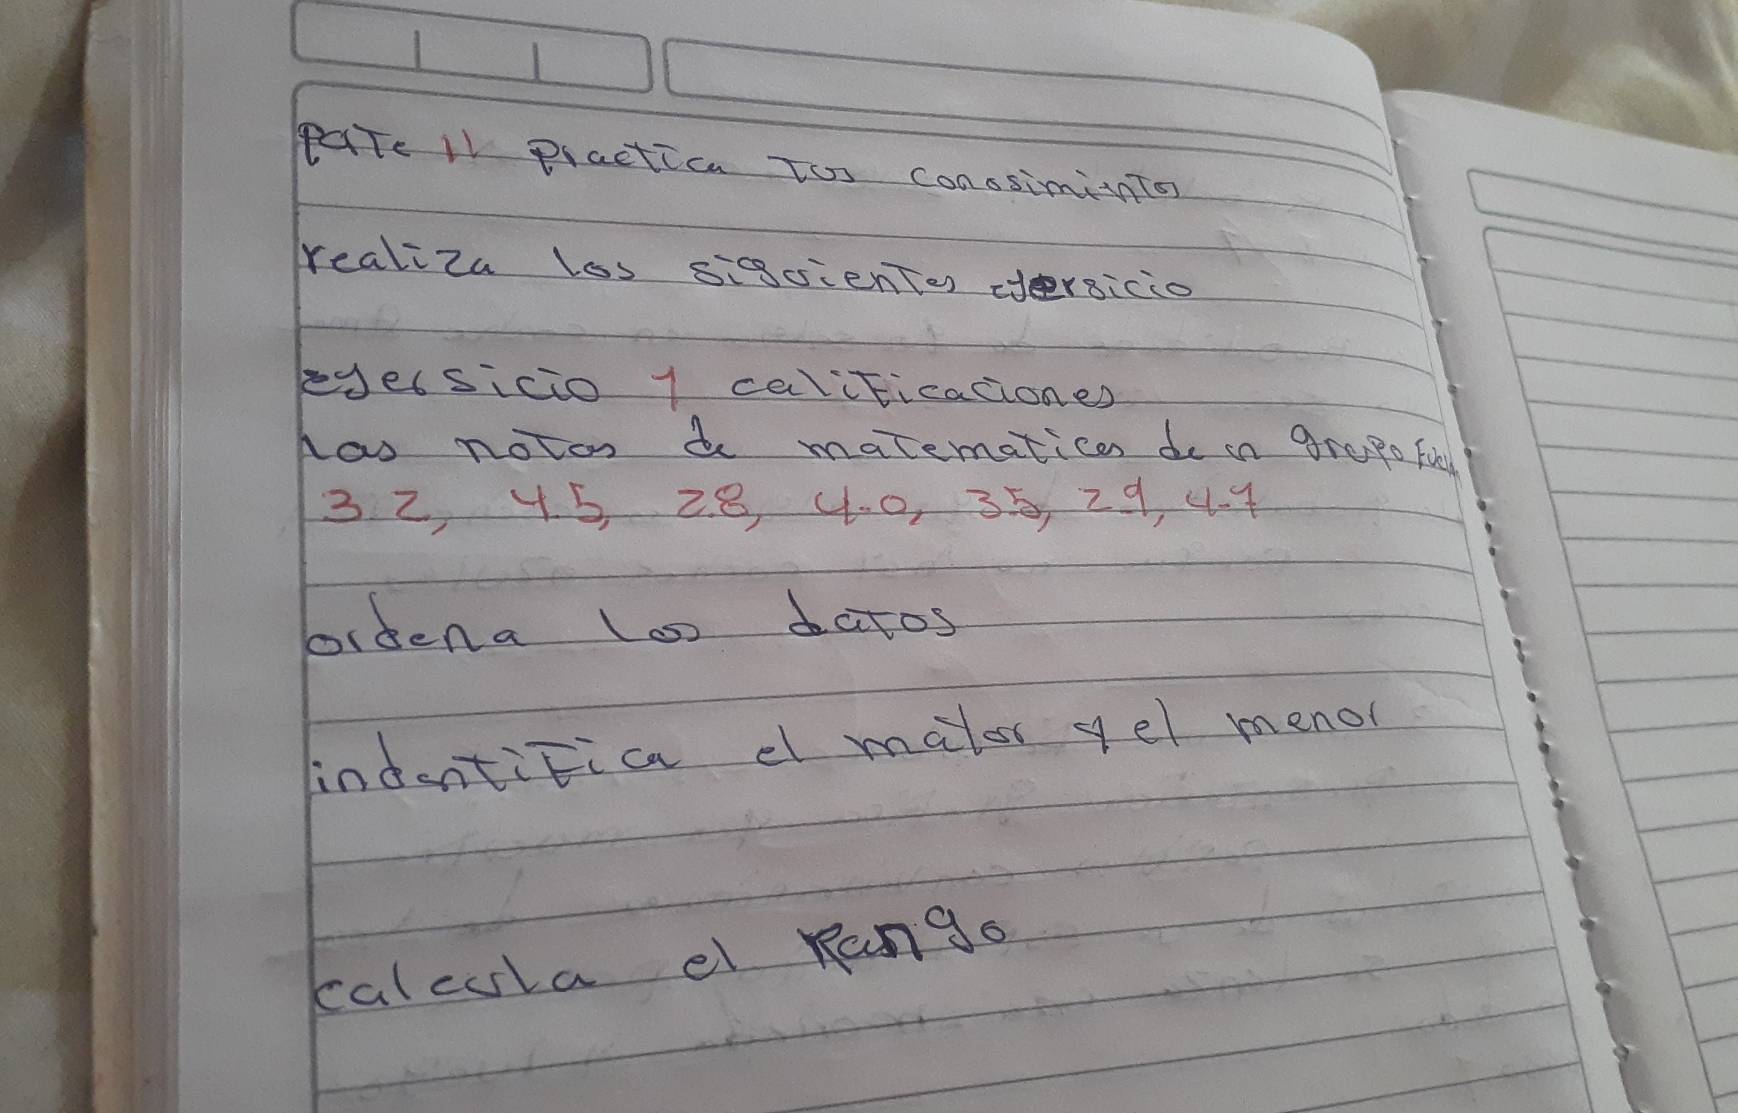 parte 11 practica tus conosimientos
realiza los siguientes ejersicio
ejersicio 1 calificaciones
las notas de matematices de un grupo
3.2, 4.5, 2.8, 4.0, 3.5, 2.9, 4.7
ordena los datos
indentifica el mayor y el menor
calcula el Rango